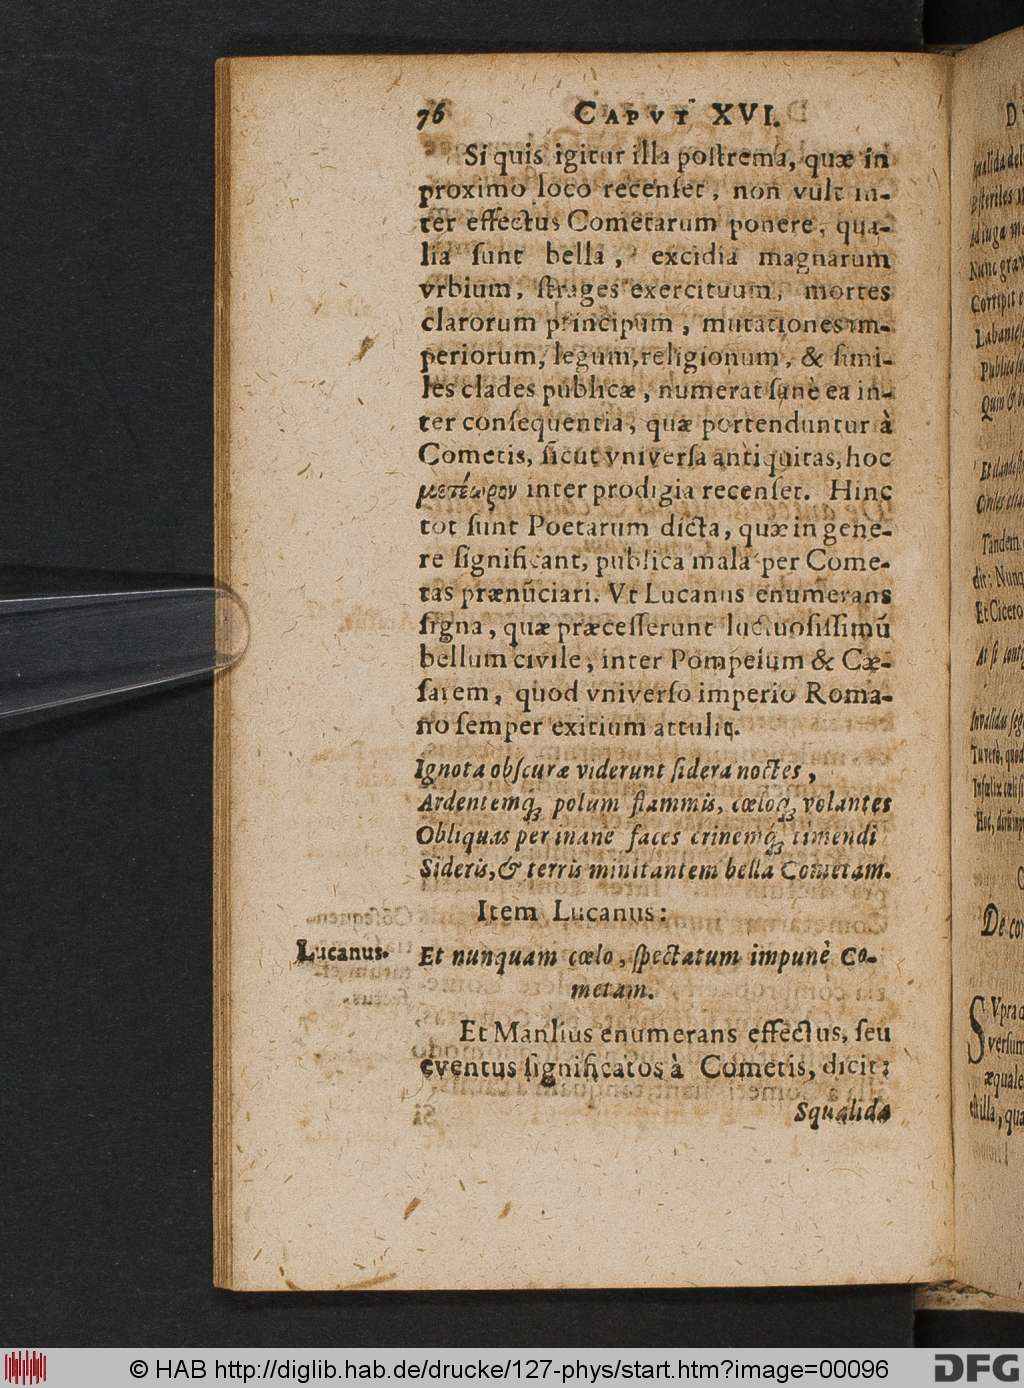 76 CAPVT XVI.
Si quis igitur illa poſtrema, quæ in
proximo loco recenſet, non vult in-
ter effectus Cometarum ponere, qua-
lia ſunt bella, excidia magnarum
vrbium, ſtrages exercituum, mortes
clarorum principum, mutationes im-
periorum, legum, religionum, & ſimi-
les clades publicæ, numerat ſanè ea in-
ter conſequentia, quæ portenduntur à
Cometis, ſicut vniverſa antiquitas, hoc
μετέωρον inter prodigia recenſet. Hinc
tot ſunt Poetarum dicta, quæ in gene-
re ſignificant, publica mala per Come-
tas prænũciari. Vt Lucanus enumerans
ſigna, quæ præceſſerunt luctuoſiſſimũ
bellum civile, inter Pompeium & Cæ-
ſarem, quod vniverſo imperio Roma-
no ſemper exitium attulit.
Ignota obſcuræ viderunt ſidera noctes,
Ardentemq́; polum flammis, cœloq́; volantes
Obliquas per inane faces crinemq́; timendi
Sideris, & terris minitantem bella Cometam.
Item Lucanus:
Lucanus.
Et nunquam cœlo, ſpectatum impunè Co-
metam.
Et Manlius enumerans effectus, ſeu
eventus ſignificatos à Cometis, dicit:
Squalida
© HAB http://diglib.hab.de/drucke/127-phys/start.htm?image=00096
DFG